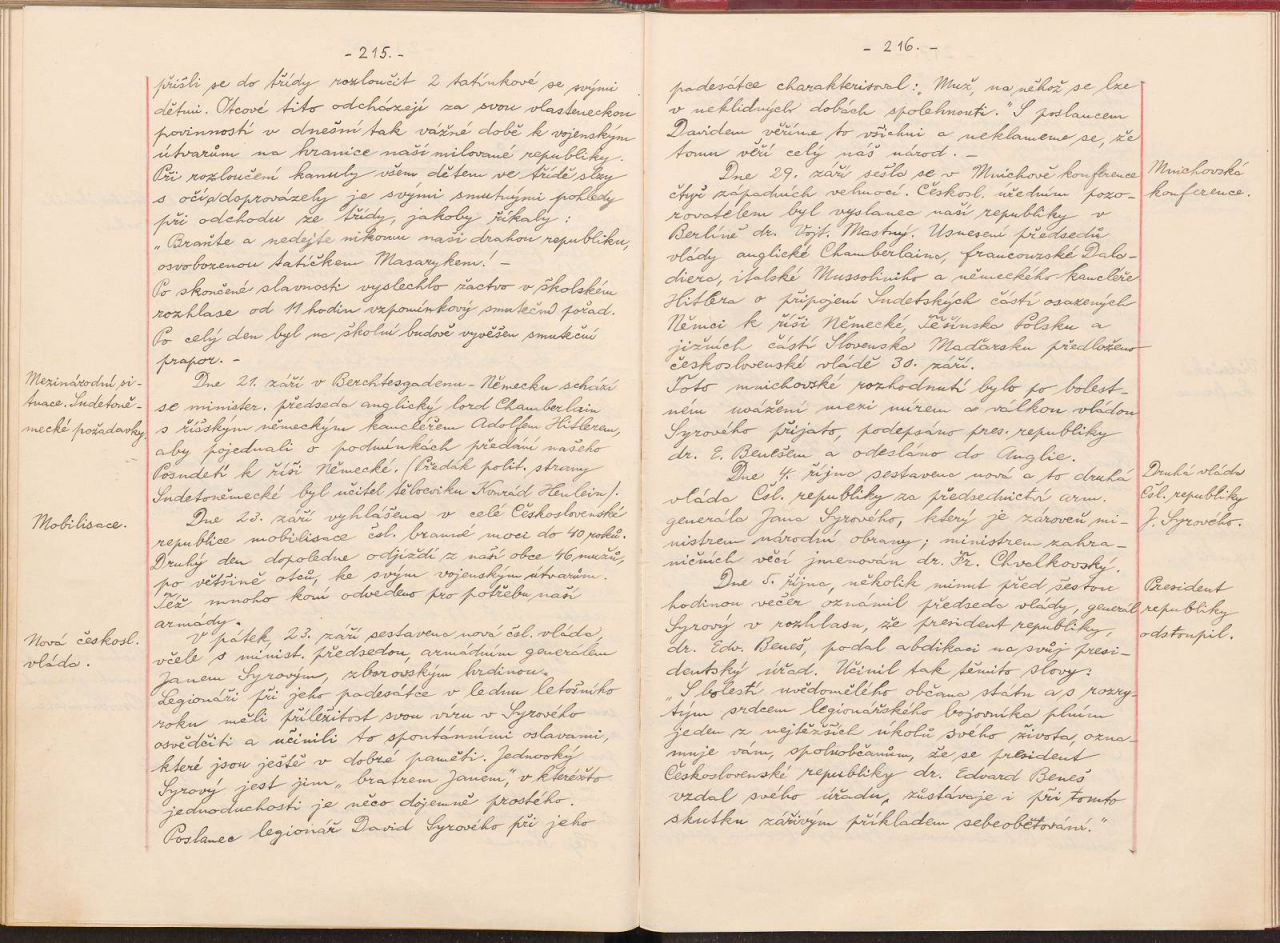 - 215. -
přišli se do třídy rozloučit 2 tatínkové se svými
dětmi. Otcové tito odcházejí za svou vlasteneckou
povinností v dnešní tak vážné době k vojenským
útvarům na hranice naší milované republiky.
Při rozloučení kanuly všem dětem ve třídě slzy
s očí, doprovázely je svými smutnými pohledy
při odchodu ze třídy, jakoby říkaly:
„Braňte a nedejte nikomu naši drahou republiku,
osvobozenou tatíčkem Masarykem! -
Po skončené slavnosti vyslechlo žactvo v školském
rozhlase od 11 hodin vzpomínkový smuteční pořad.
Po celý den byl na školní budově vyvěšen smuteční
prapor. -
Mezinárodní si-
tuace. Sudetoně-
mecké požadavky.
Dne 21. září v Berchtesgadenu - Německu schází
se minister. předseda anglický lord Chamberlain
s říšským německým kancléřem Adolfem Hitlerem,
aby pojednali o podmínkách předání našeho
Posudetí k říši Německé. (Předák polit. strany
Sudetoněmecké byl učitel tělocviku Konrád Henlein).
Mobilisace.
Dne 23. září vyhlášena v celé Československé
republice mobilisace čsl. branné moci do 40 roků.
Druhý den dopoledne odjíždí z naší obce 46 mužů,
po většině otců, ke svým vojenským útvarům.
Též mnoho koní odvedeno pro potřebu naší
armády.
Nová českosl.
vláda.
V pátek, 23. září sestavena nová čsl. vláda,
včele s minist. předsedou, armádním generálem
Janem Syrovým, zborovským hrdinou.
Legionáři při jeho padesátce v lednu letošního
roku měli příležitost svou víru v Syrového
osvědčiti a učinili to spontánními oslavami,
které jsou ještě v dobré paměti. Jednooký
Syrový jest jim „bratrem Janem“, v kteréžto
jednoduchosti je něco dojemně prostého.
Poslanec legionář David Syrového při jeho
- 216. -
padesátce charakterisoval: „Muž, na něhož se lze
v neklidných dobách spolehnouti.“ S poslancem
Davidem věříme to všichni a neklameme se, že
tomu věří celý náš národ. -
Mnichovská
konference.
Dne 29. září sešla se v Mnichově konference
čtyř západních velmocí. Českosl. úředním pozo-
rovatelem byl vyslanec naší republiky v
Berlíně dr. Vojt. Mastný. Usnesení předsedů
vlády anglické Chamberlaina, francouzské Dala-
diera, italské Mussoliniho a německého kancléře
Hitlera o připojení Sudetských částí osazených
Němci k říši Německé, Těšínska Polsku a
jižních částí Slovenska Maďarsku předloženo
československé vládě 30. září.
Toto mnichovské rozhodnutí bylo po bolest-
ném uvážení mezi mírem a válkou vládou
Syrového přijato, podepsáno pres. republiky
dr. E. Benešem a odesláno do Anglie.
Druhá vláda
Čsl. republiky
J. Syrového.
Dne 4. října sestavena nová a to druhá
vláda Čsl. republiky za předsednictví arm.
generála Jana Syrového, který je zároveň mi-
nistrem národní obrany; ministrem zahra-
ničních věcí jmenován dr. Fr. Chvalkovský.
President
republiky
odstoupil.
Dne 5. října, několik minut před šestou
hodinou večer oznámil předseda vlády, generál
Syrový v rozhlasu, že president republiky,
dr. Edv. Beneš, podal abdikaci na svůj presi-
dentský úřad. Učinil tak těmito slovy:
„S bolestí uvědomělého občana státu a s rozry-
tým srdcem legionářského bojovníka plním
jeden z nejtěžších úkolů svého života, ozna-
muje vám, spoluobčanům, že se president
Československé republiky dr. Edvard Beneš
vzdal svého úřadu, zůstávaje i při tomto
skutku zářivým příkladem sebeobětování.“